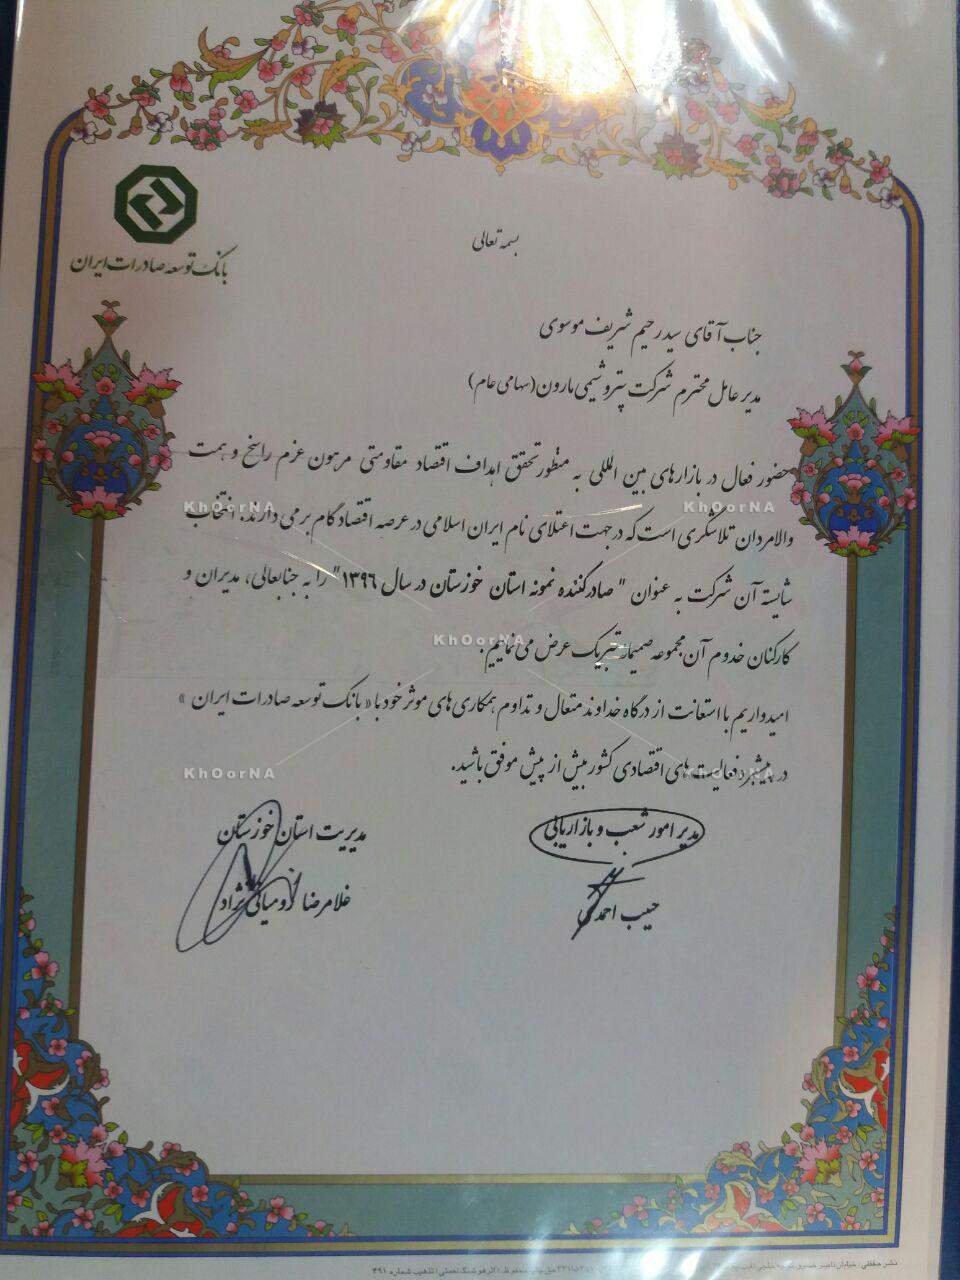 بانک توسعه صادرات ایران
بسمه تعالی
جناب آقای سید رحیم شریف موسوی
مدیر عامل محترم شرکت پتروشیمی مارون (سهامی عام)
حضور فعال در بازارهای بین المللی به منظور تحقق اهداف اقتصاد مقاومتی مرهون عزم راسخ و همت
والامردان تلاشگری است که در جهت اعتلای نام ایران اسلامی در عرصه اقتصاد گام برمی دارند. انتخاب
شایسته آن شرکت به عنوان "صادرکننده نمونه استان خوزستان در سال ۱۳۹۶" را به جنابعالی، مدیران و
کارکنان خدوم آن مجموعه صمیمانه تبریک عرض می نماییم.
امیدواریم با استعانت از درگاه خداوند متعال و تداوم همکاری های موثر خود با «بانک توسعه صادرات ایران»
در پیشبرد فعالیت های اقتصادی کشور بیش از پیش موفق باشید.
مدیر امور شعب و بازاریابی
حبیب احمدی
مدیریت استان خوزستان
غلامرضا رومیانی نژاد
KhOorNA
KhOorNA
KhOorNA
KhOorNA
KhOorNA